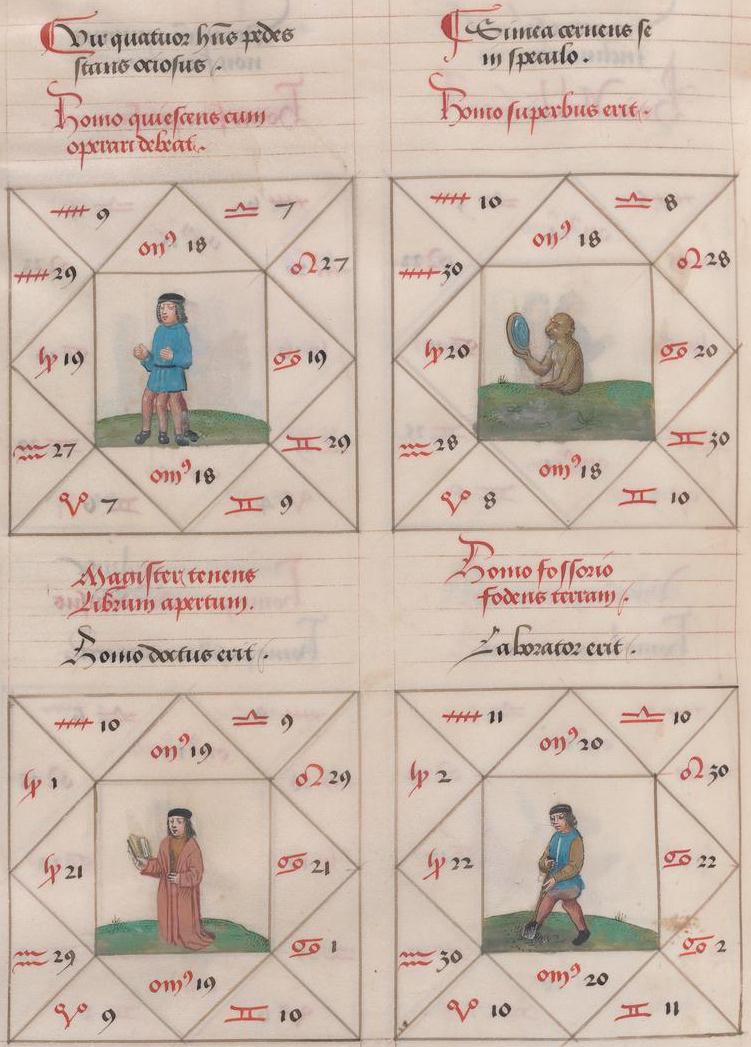 Vir quatuor hn̄s pedes
stans ociosus.
Homo quiescens cum
operari debeat.
Simea cernens se
in speculo.
Homo superbus erit.
9
7
18
29
27
19
19
27
29
18
7
9
10
8
18
30
28
20
20
28
30
18
8
10
Magister tenens
Librum apertum.
Homo doctus erit.
Homo fossorio
fodens terram.
Laborator erit.
10
9
19
1
29
21
21
29
1
19
9
10
11
10
20
2
30
22
22
30
2
20
10
11